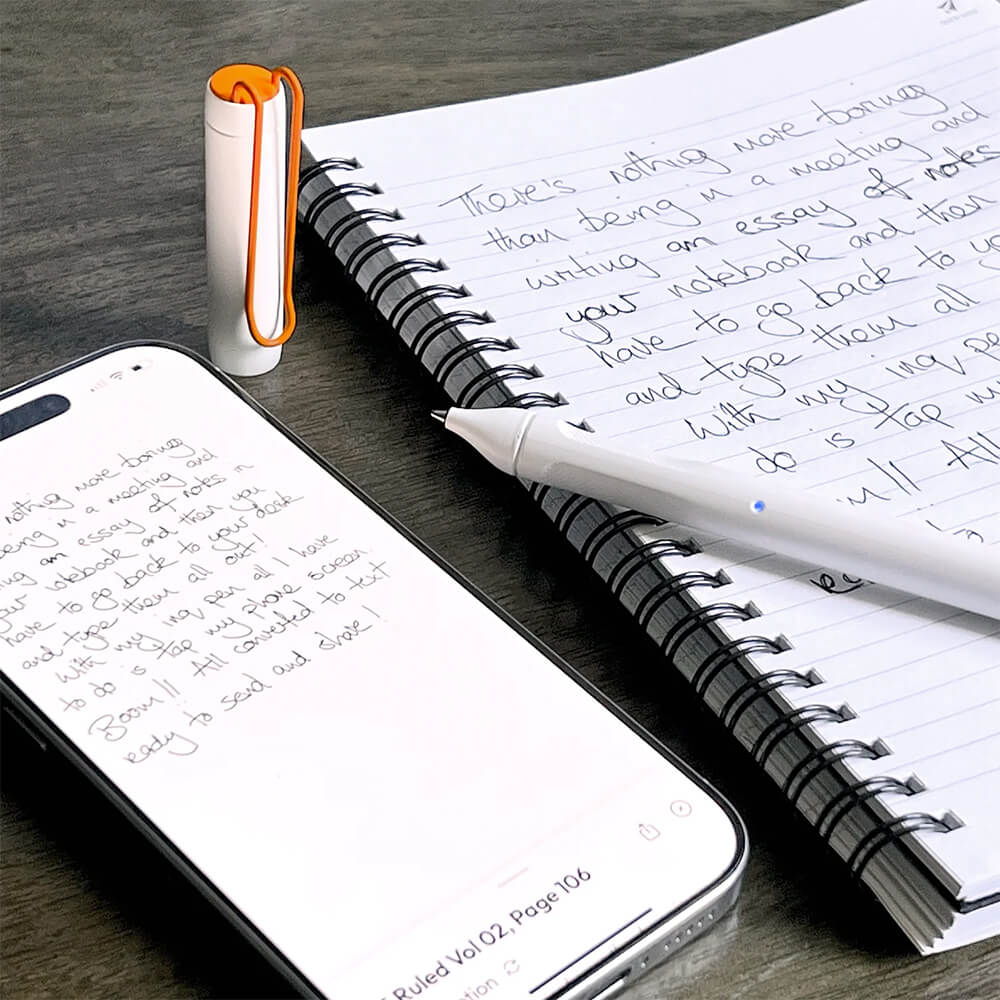 There's nothing more boring
than being in a meeting and
writing an essay of notes
your notebook and then
have to go back to
and type them all
With my inq pen
do is tap
All
nothing more boring
being in a meeting and
an essay of notes in
notebook and then you
have to go back to your desk
and type them all out!
With my inq pen all I have
to do is tap my phone screen
Boom!! All converted to text
ready to send and share!
Ruled Vol 02, Page 106